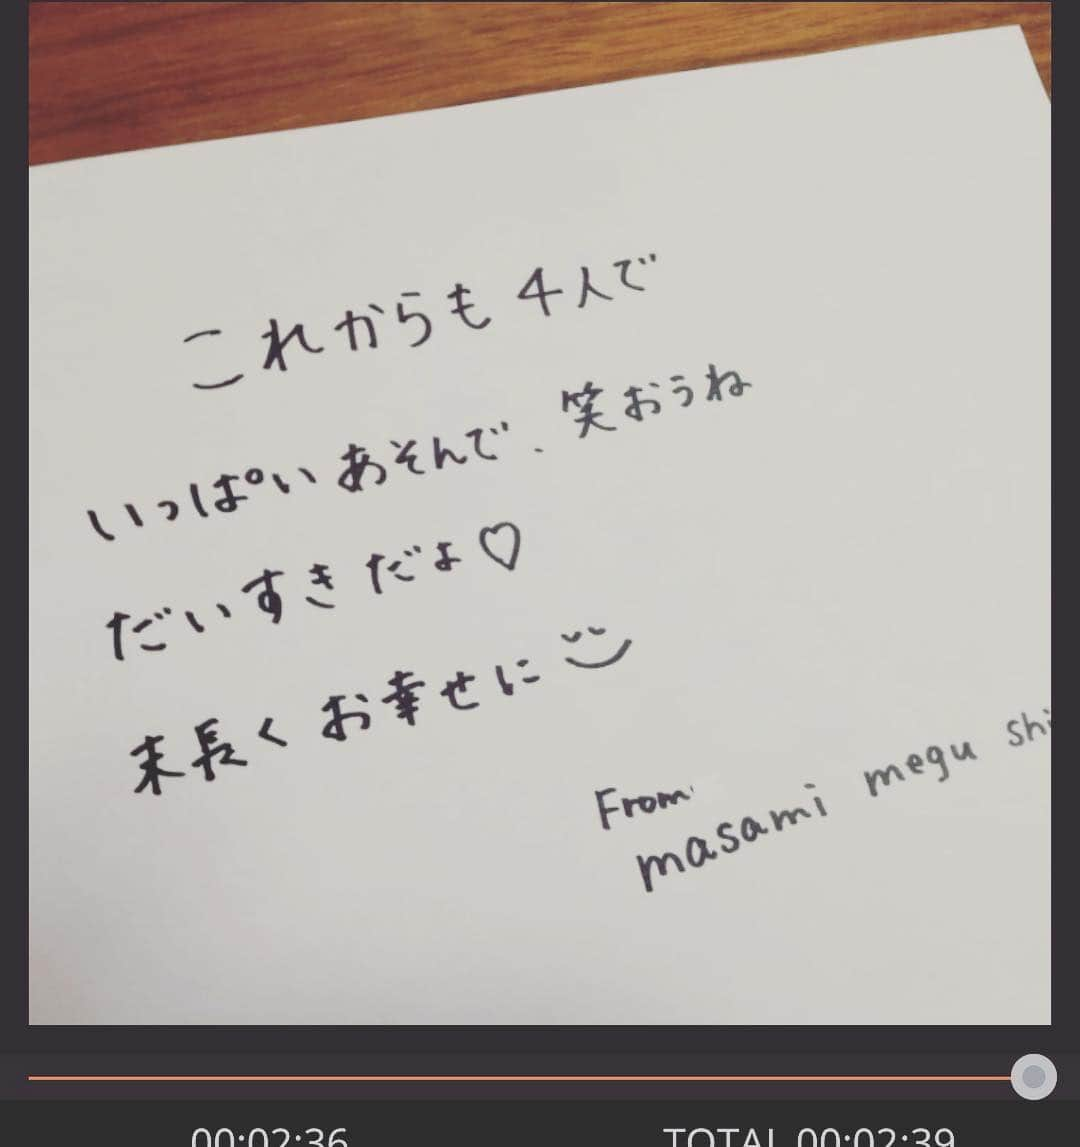 これからも4人で
いっぱいあそんで、笑おうね
だいすきだよ♡
末長くお幸せに
From
masami megu shi
00:02:36
TOTAL 00:02:39